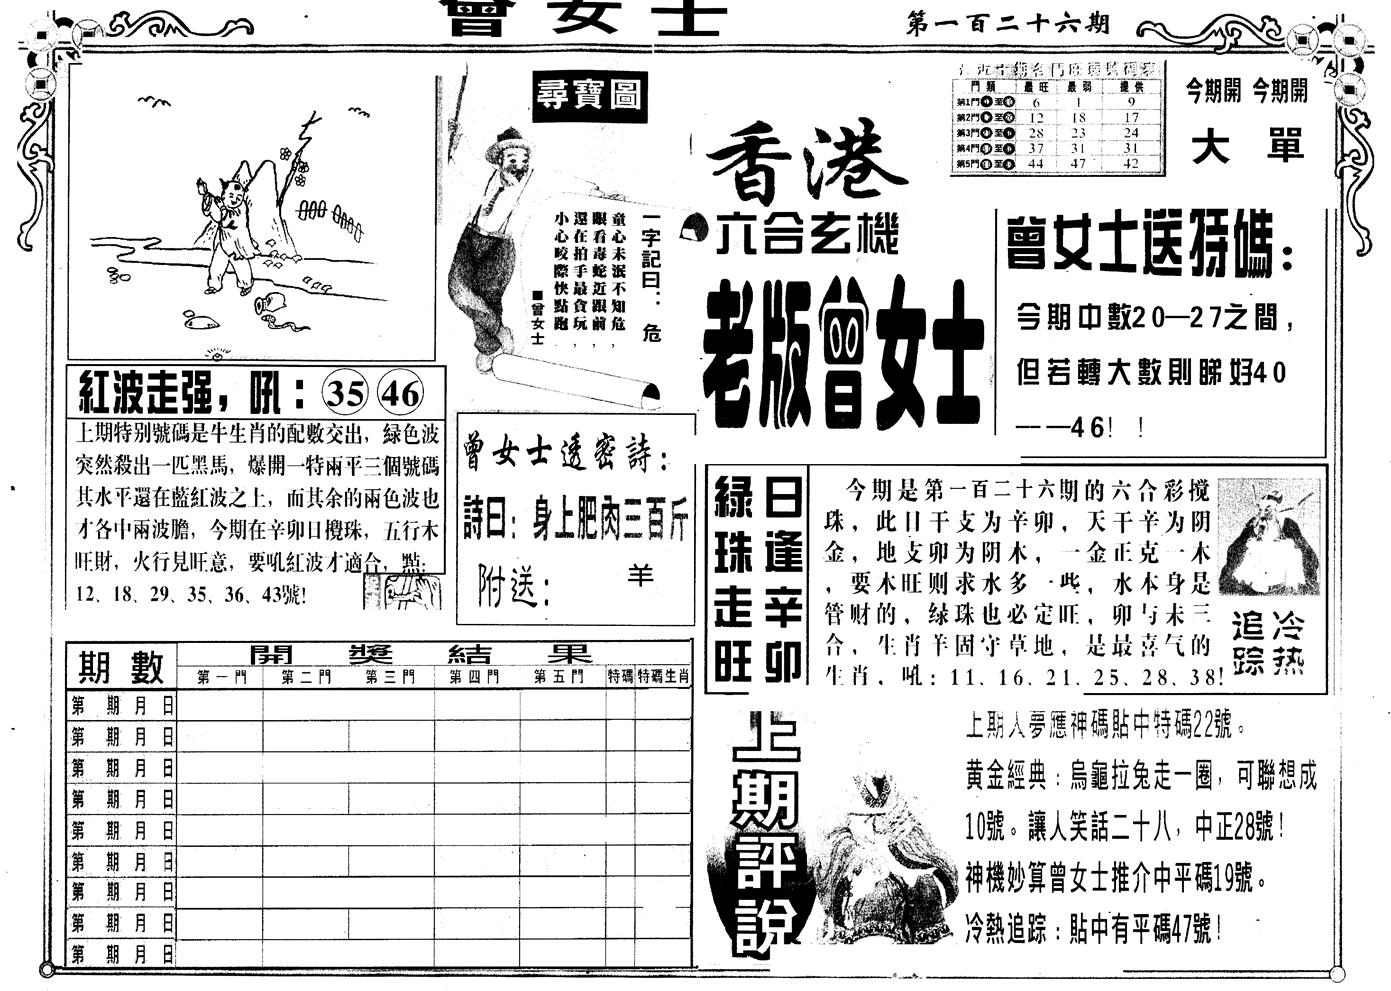 曾女士
第一百二十六期
尋寶圖
一字記曰：危
童心未泯不知危，
眼看毒蛇近跟前，
還在拍手最貪玩，
小心咬際快點跑
■曾女士
香港
六合玄機
老版曾女士
門類 最旺 最弱 提供
第1門 至 6 1 9
第2門 至 12 18 17
第3門 至 28 23 24
第4門 至 37 31 31
第5門 至 44 47 42
今期開 今期開
大 單
曾女士送特碼：
今期中數20—27之間，
但若轉大數則睇好40
———46！！
紅波走强，吼：35 46
上期特别號碼是牛生肖的配數交出，綠色波
突然殺出一匹黑馬，爆開一特兩平三個號碼
其水平還在藍紅波之上，而其余的兩色波也
才各中兩波膽，今期在辛卯日攪珠，五行木
旺財，火行見旺意，要吼紅波才適合，點：
12、18、29、35、36、43號！
曾女士透密詩：
詩曰：身上肥肉三百斤
附送： 羊
綠珠走旺
日逢辛卯
今期是第一百二十六期的六合彩搅
珠，此日干支为辛卯，天干辛为阴
金，地支卯为阴木，一金正克一木
，要木旺则求水多一些，水本身是
管财的，绿珠也必定旺，卯与未三
合，生肖羊固守草地，是最喜气的
生肖，吼：11、16、21、25、28、38！
追踪
冷热
期數 開獎結果
第一門 第二門 第三門 第四門 第五門 特碼 特碼生肖
第 期 月 日
第 期 月 日
第 期 月 日
第 期 月 日
第 期 月 日
第 期 月 日
第 期 月 日
第 期 月 日
第 期 月 日
上期評說
上期人夢應神碼貼中特碼22號。
黄金經典：烏龜拉兔走一圈，可聯想成
10號。讓人笑話二十八，中正28號！
神機妙算曾女士推介中平碼19號。
冷熱追踪：貼中有平碼47號！